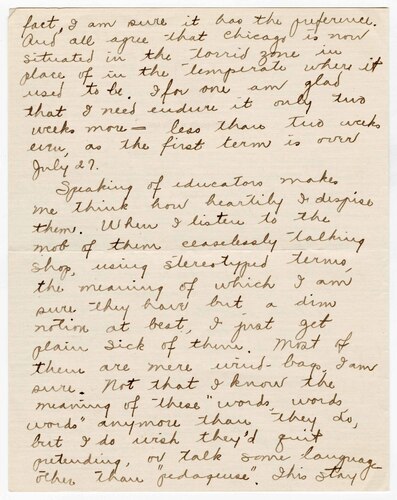 fact, I am sure it has the preference.
And all agree that Chicago is now
situated in the torrid zone in
place of in the temperate where it
used to be. I for one am glad
that I need endure it only two
weeks more — less than two weeks
even, as the first term is over
July 27.
Speaking of educators makes
me think how heartily I despise
them. When I listen to the
mob of them ceaselessly talking
shop, using stereotyped terms,
the meaning of which I am
sure they have but a dim
notion at best, I just get
plain sick of them. Most of
them are mere wind-bags, I am
sure. Not that I know the
meaning of these "words, words
words" anymore than they do,
but I do wish they'd quit
pretending, or talk some language
other than "pedaguese". This stay